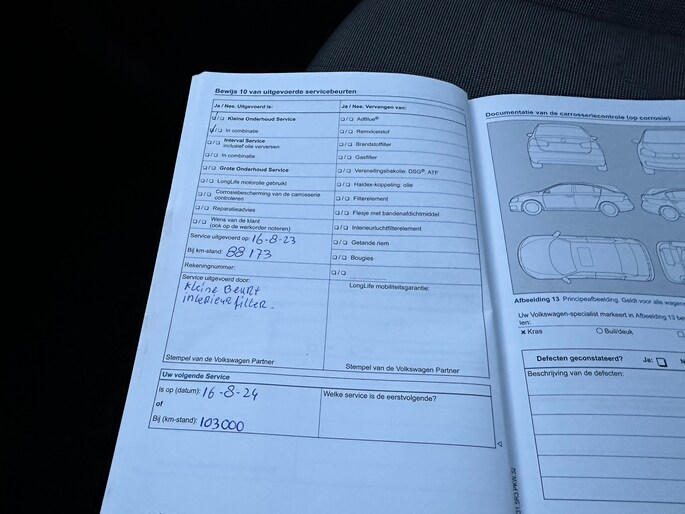 Bewijs 10 van uitgevoerde servicebeurten
Ja / Nee. Uitgevoerd is:
Kleine Onderhoud Service
In combinatie
Interval Service
inclusief olie verversen
In combinatie
Grote Onderhoud Service
LongLife motorolie gebruikt
Corrosiebescherming van de carrosserie
controleren
Reparatieadvies
Wens van de klant
(ook op de werkorder noteren)
Service uitgevoerd op: 16-8-23
Bij km-stand: 88173
Rekeningnummer:
Service uitgevoerd door:
Kleine Beurt
interieurfilter.
Stempel van de Volkswagen Partner
Ja / Nee. Vervangen van:
AdBlue®
Remvloeistof
Brandstoffilter
Gasfilter
Versnellingsbakolie: DSG®, ATF
Haldex-koppeling: olie
Filterelement
Flesje met bandenafdichtmiddel
Interieurluchtfilterelement
Getande riem
Bougies
LongLife mobiliteitsgarantie:
Stempel van de Volkswagen Partner
Uw volgende Service
Is op (datum): 16-8-24
of
Bij (km-stand): 103000
Welke service is de eerstvolgende?
Documentatie van de carrosseriecontrole (op corrosie)
Afbeelding 13 Principeafbeelding. Geldt voor alle wagen
Uw Volkswagen-specialist markeert in Afbeelding 13 be
len:
× Kras
Buil/deuk
Defecten geconstateerd? Ja:
Beschrijving van de defecten: